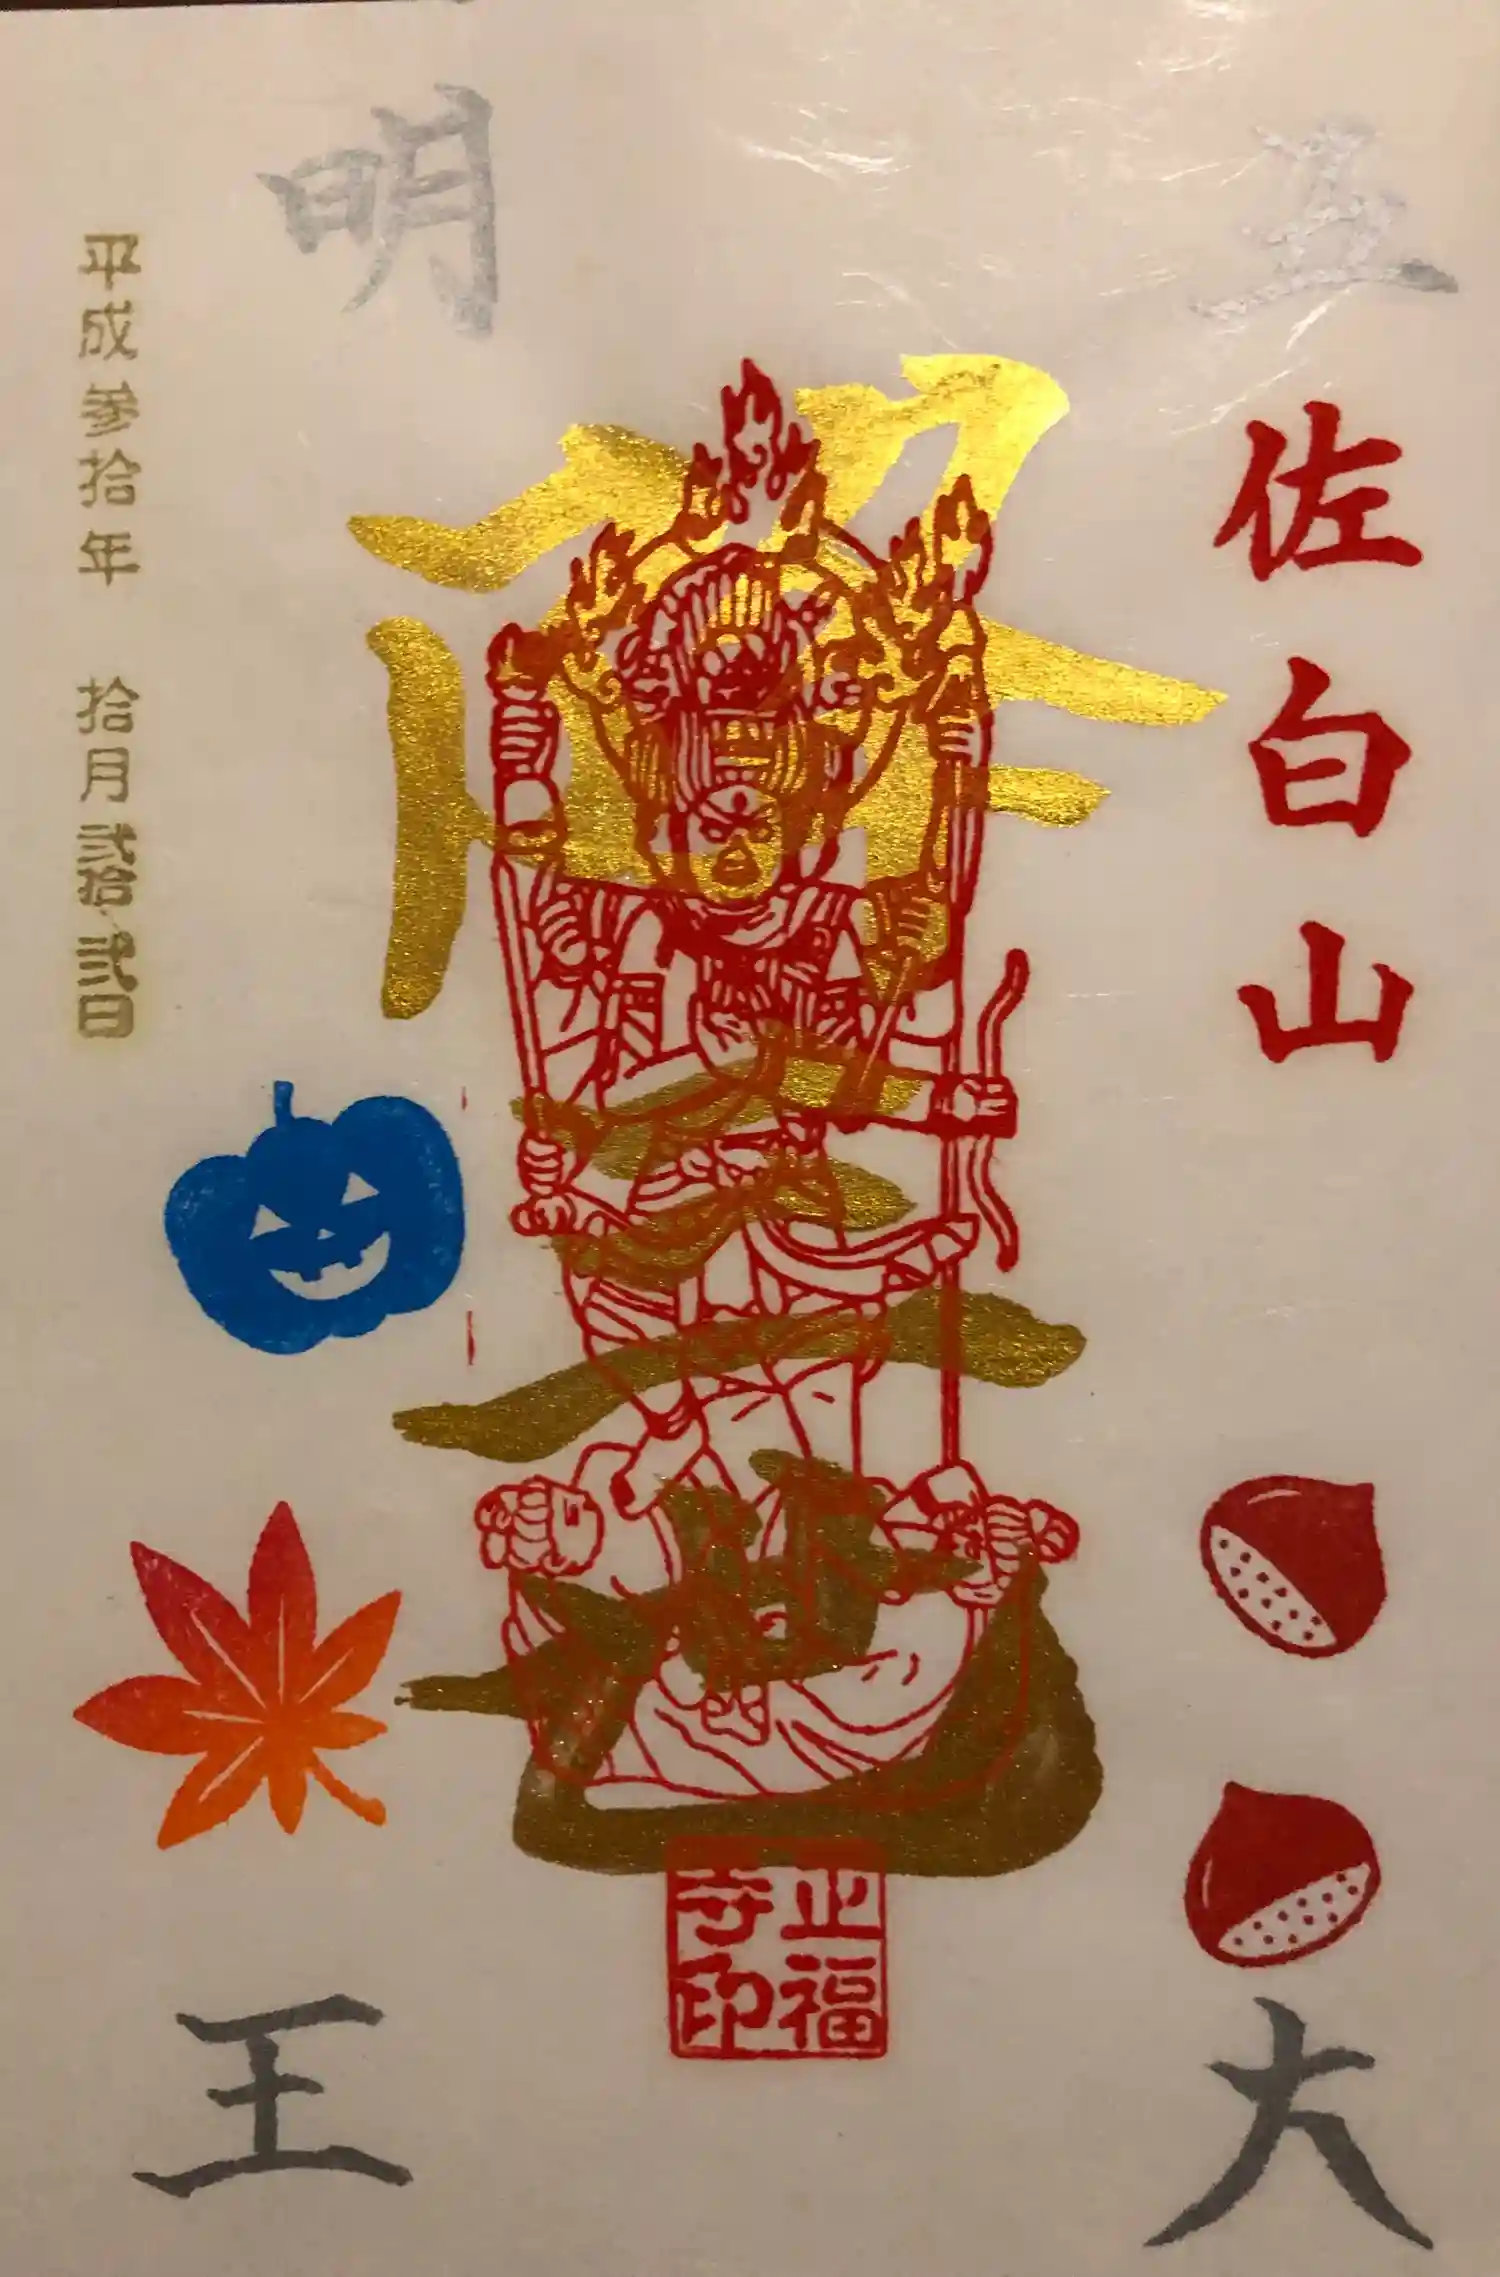 五
佐白山
大
降三世
正福
寺印
明
王
平成参拾年 拾月弐拾弐日